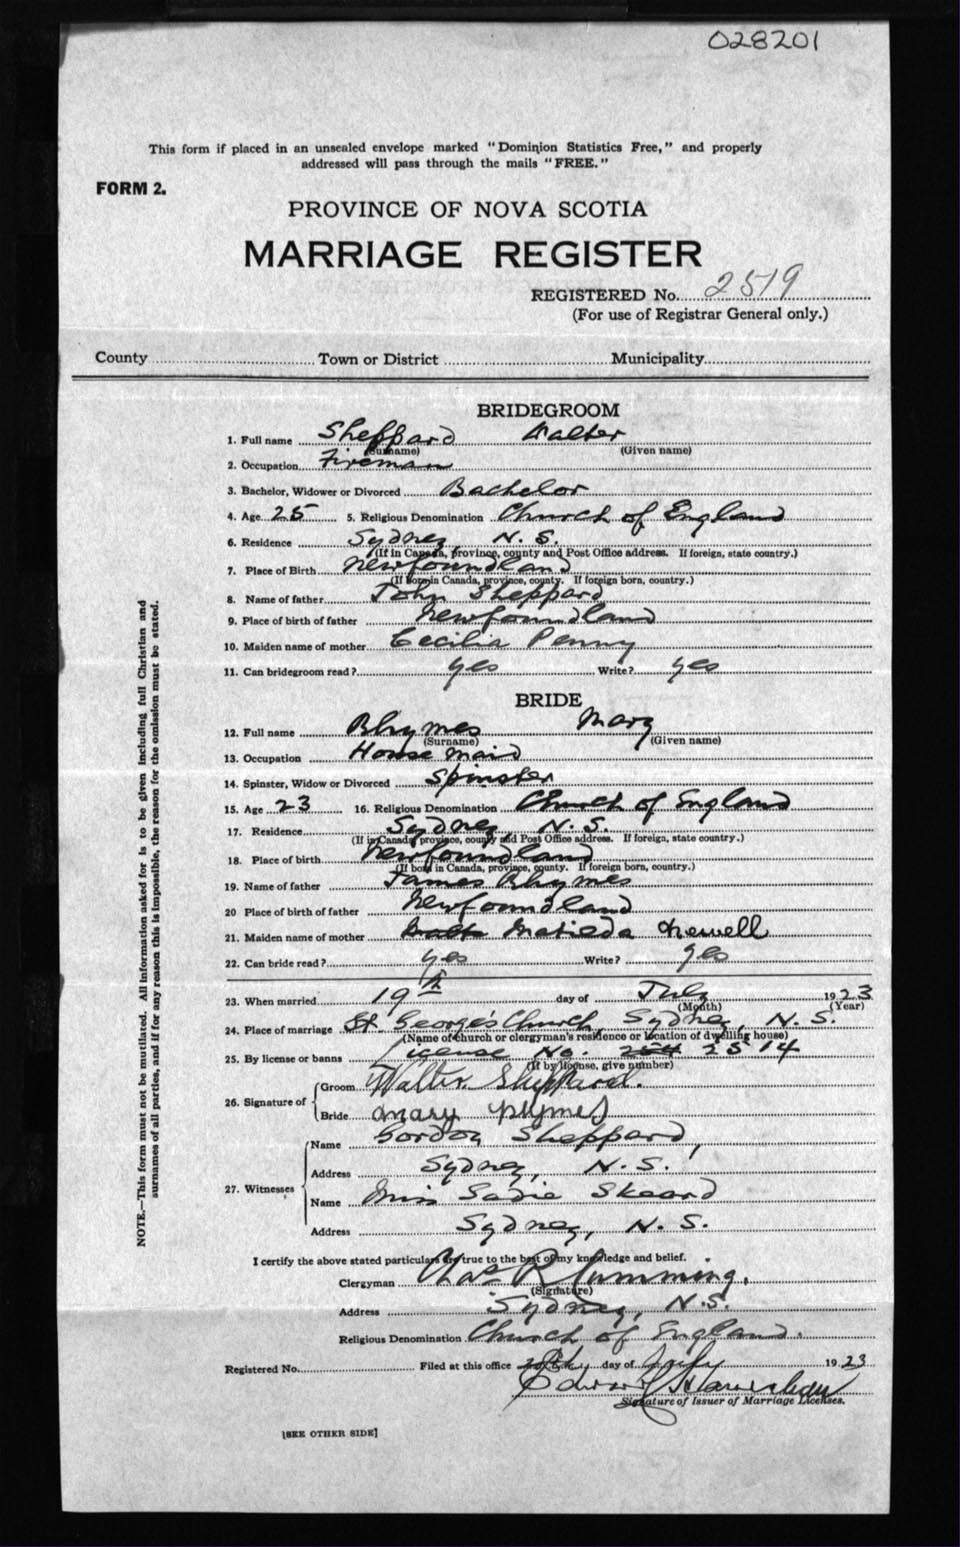 028201
This form if placed in an unsealed envelope marked "Dominion Statistics Free," and properly
addressed will pass through the mails "FREE."
FORM 2.
PROVINCE OF NOVA SCOTIA
MARRIAGE REGISTER
REGISTERED No. 2519
(For use of Registrar General only.)
County Town or District Municipality
BRIDEGROOM
1. Full name Sheppard Walter
(Surname) (Given name)
2. Occupation Fireman
3. Bachelor, Widower or Divorced Bachelor
4. Age 25 5. Religious Denomination Church of England
6. Residence Sydney N. S.
(If in Canada, province, county and Post Office address. If foreign, state country.)
7. Place of Birth Newfoundland
(If born in Canada, province, county. If foreign born, country.)
8. Name of father John Sheppard
9. Place of birth of father Newfoundland
10. Maiden name of mother Cecilia Penny
11. Can bridegroom read? yes Write? yes
BRIDE
12. Full name Rhymes Mary
(Surname) (Given name)
13. Occupation House maid
14. Spinster, Widow or Divorced Spinster
15. Age 23 16. Religious Denomination Church of England
17. Residence Sydney, N. S.
(If in Canada, province, county and Post Office address. If foreign, state country.)
18. Place of birth Newfoundland
(If born in Canada, province, county. If foreign born, country.)
19. Name of father James Rhymes
20 Place of birth of father Newfoundland
21. Maiden name of mother Matilda Newell
22. Can bride read? yes Write? yes
23. When married 19th day of July 1923
(Month) (Year)
24. Place of marriage St. George's Church, Sydney, N. S.
(Name of church or clergyman's residence or location of dwelling house)
25. By license or banns License No. 2514
(If by license, give number)
26. Signature of Groom Walter Sheppard.
Bride Mary Rhymes
27. Witnesses Name Gordon Sheppard,
Address Sydney, N. S.
Name Miss Sadie Skeard
Address Sydney, N. S.
I certify the above stated particulars are true to the best of my knowledge and belief.
Clergyman Chas R Cumming.
(Signature)
Address Sydney, N.S.
Religious Denomination Church of England.
Registered No. Filed at this office day of July 1923
Edward
Signature of Issuer of Marriage Licenses.
[SEE OTHER SIDE]
NOTE.—This form must not be mutilated. All information asked for is to be given including full Christian and
surnames of all parties, and if for any reason this is impossible, the reason for the omission must be stated.